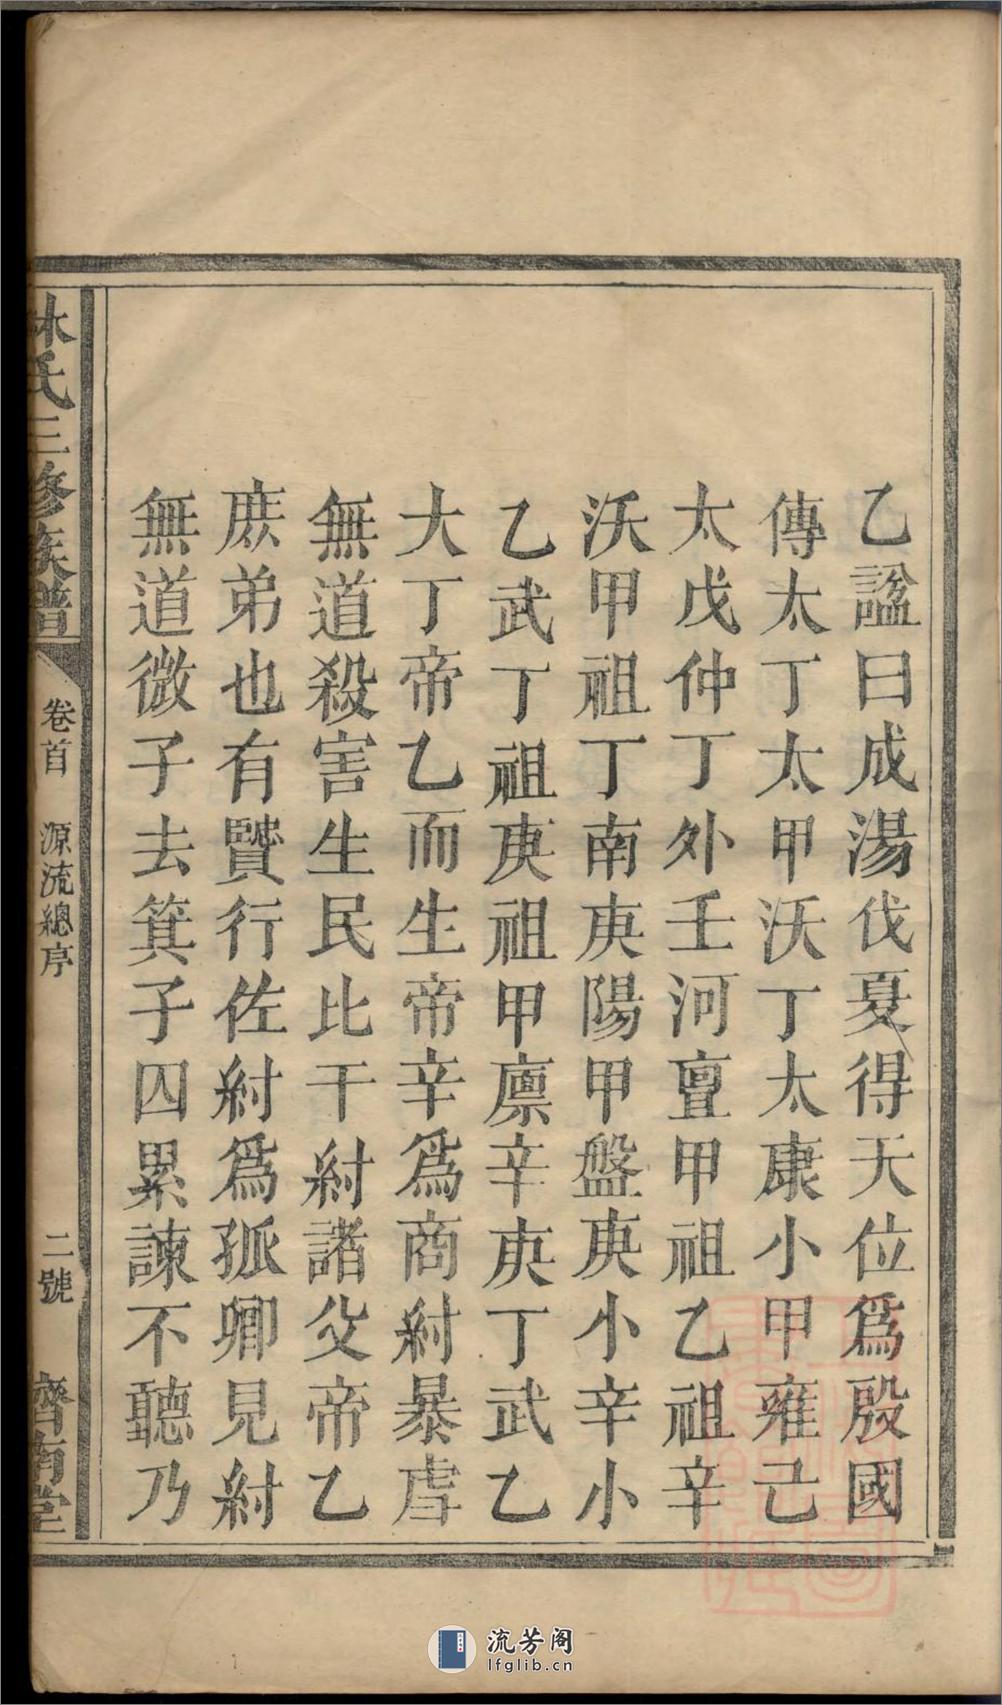 乙諡曰成湯伐夏得天位爲殷國
傳太丁太甲沃丁太康小甲雍己
太戊仲丁外壬河亶甲祖乙祖辛
沃甲祖丁南庚陽甲盤庚小辛小
乙武丁祖庚祖甲廪辛庚丁武乙
大丁帝乙而生帝辛爲商紂暴虐
無道殺害生民比干紂諸父帝乙
庶弟也有賢行佐紂爲孤卿見紂
無道微子去箕子囚累諫不聽乃
林氏三修族譜
卷首 源流總序
二號
齊南堂
流芳阁
lfglib.cn